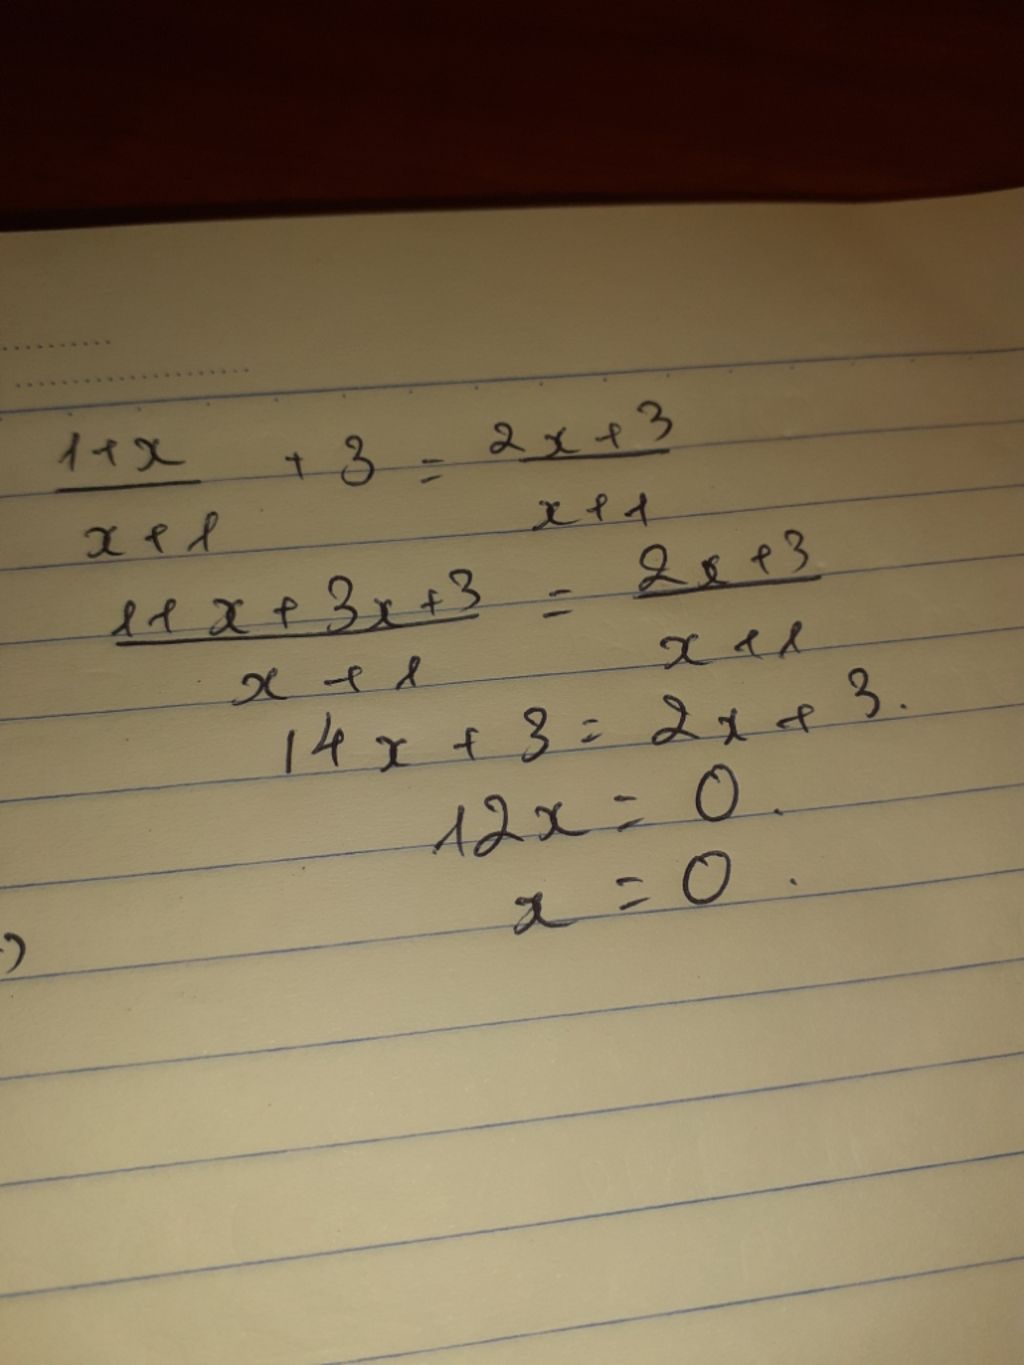 1+x/x+1 + 3 = 2x+3/x+1
1+x+3x+3/x+1 = 2x+3/x+1
14x + 3 = 2x + 3.
12x = 0.
x = 0.